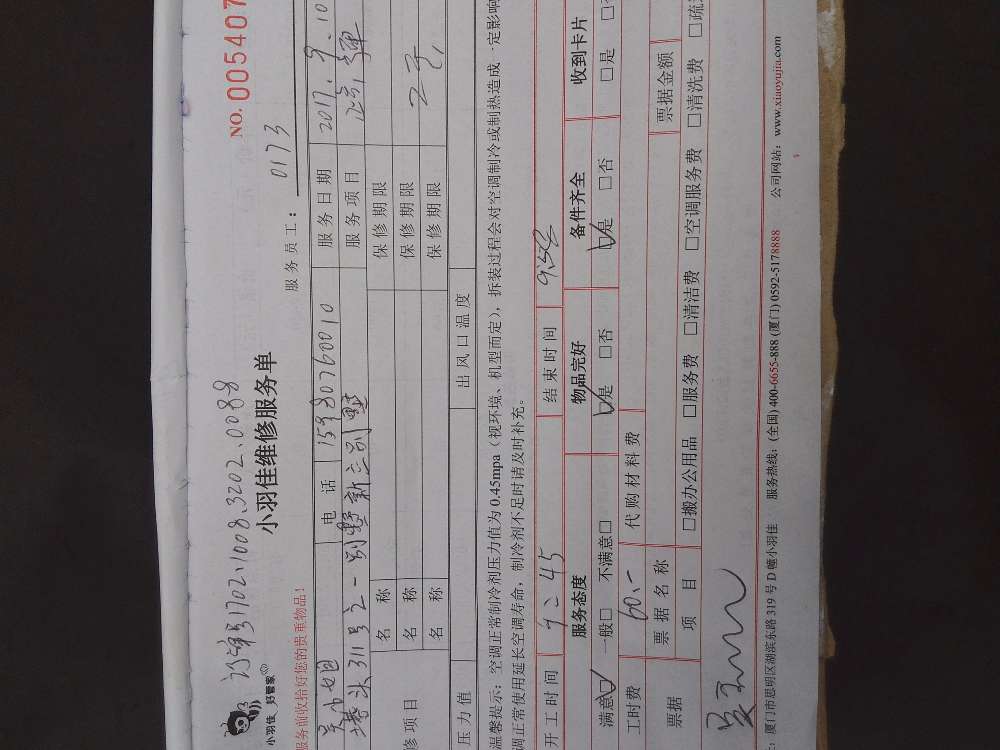 1702.1008.3202.0088
小羽佳 好管家
小羽佳维修服务单
NO.005407
服务员工： 0173
服务前收拾好您的贵重物品！
电话 15980760010 服务日期 2017.9.10
311号之一 服务项目
修项目 名称 保修期限
名称 保修期限
名称 保修期限
压力值 出风口温度
温馨提示：空调正常制冷剂压力值为 0.45mpa（视环境、机型而定），拆装过程会对空调制冷或制热造成一定影响
调正常使用延长空调寿命，制冷剂不足时请及时补充。
开工时间 9:45 结束时间 9:52
服务态度 物品完好 备件齐全 收到卡片
满意☑ 一般□ 不满意□ ☑是 □否 ☑是 □否 □是
工时费 60.- 代购材料费
票据 票据名称 票据金额
项目 □搬办公用品 □服务费 □清洁费 □空调服务费 □清洗费 □疏
：厦门市思明区湖滨东路 319 号 D 幢小羽佳 服务热线：(全国) 400-6655-888 (厦门) 0592-5178888 公司网站：www.xiaoyujia.com